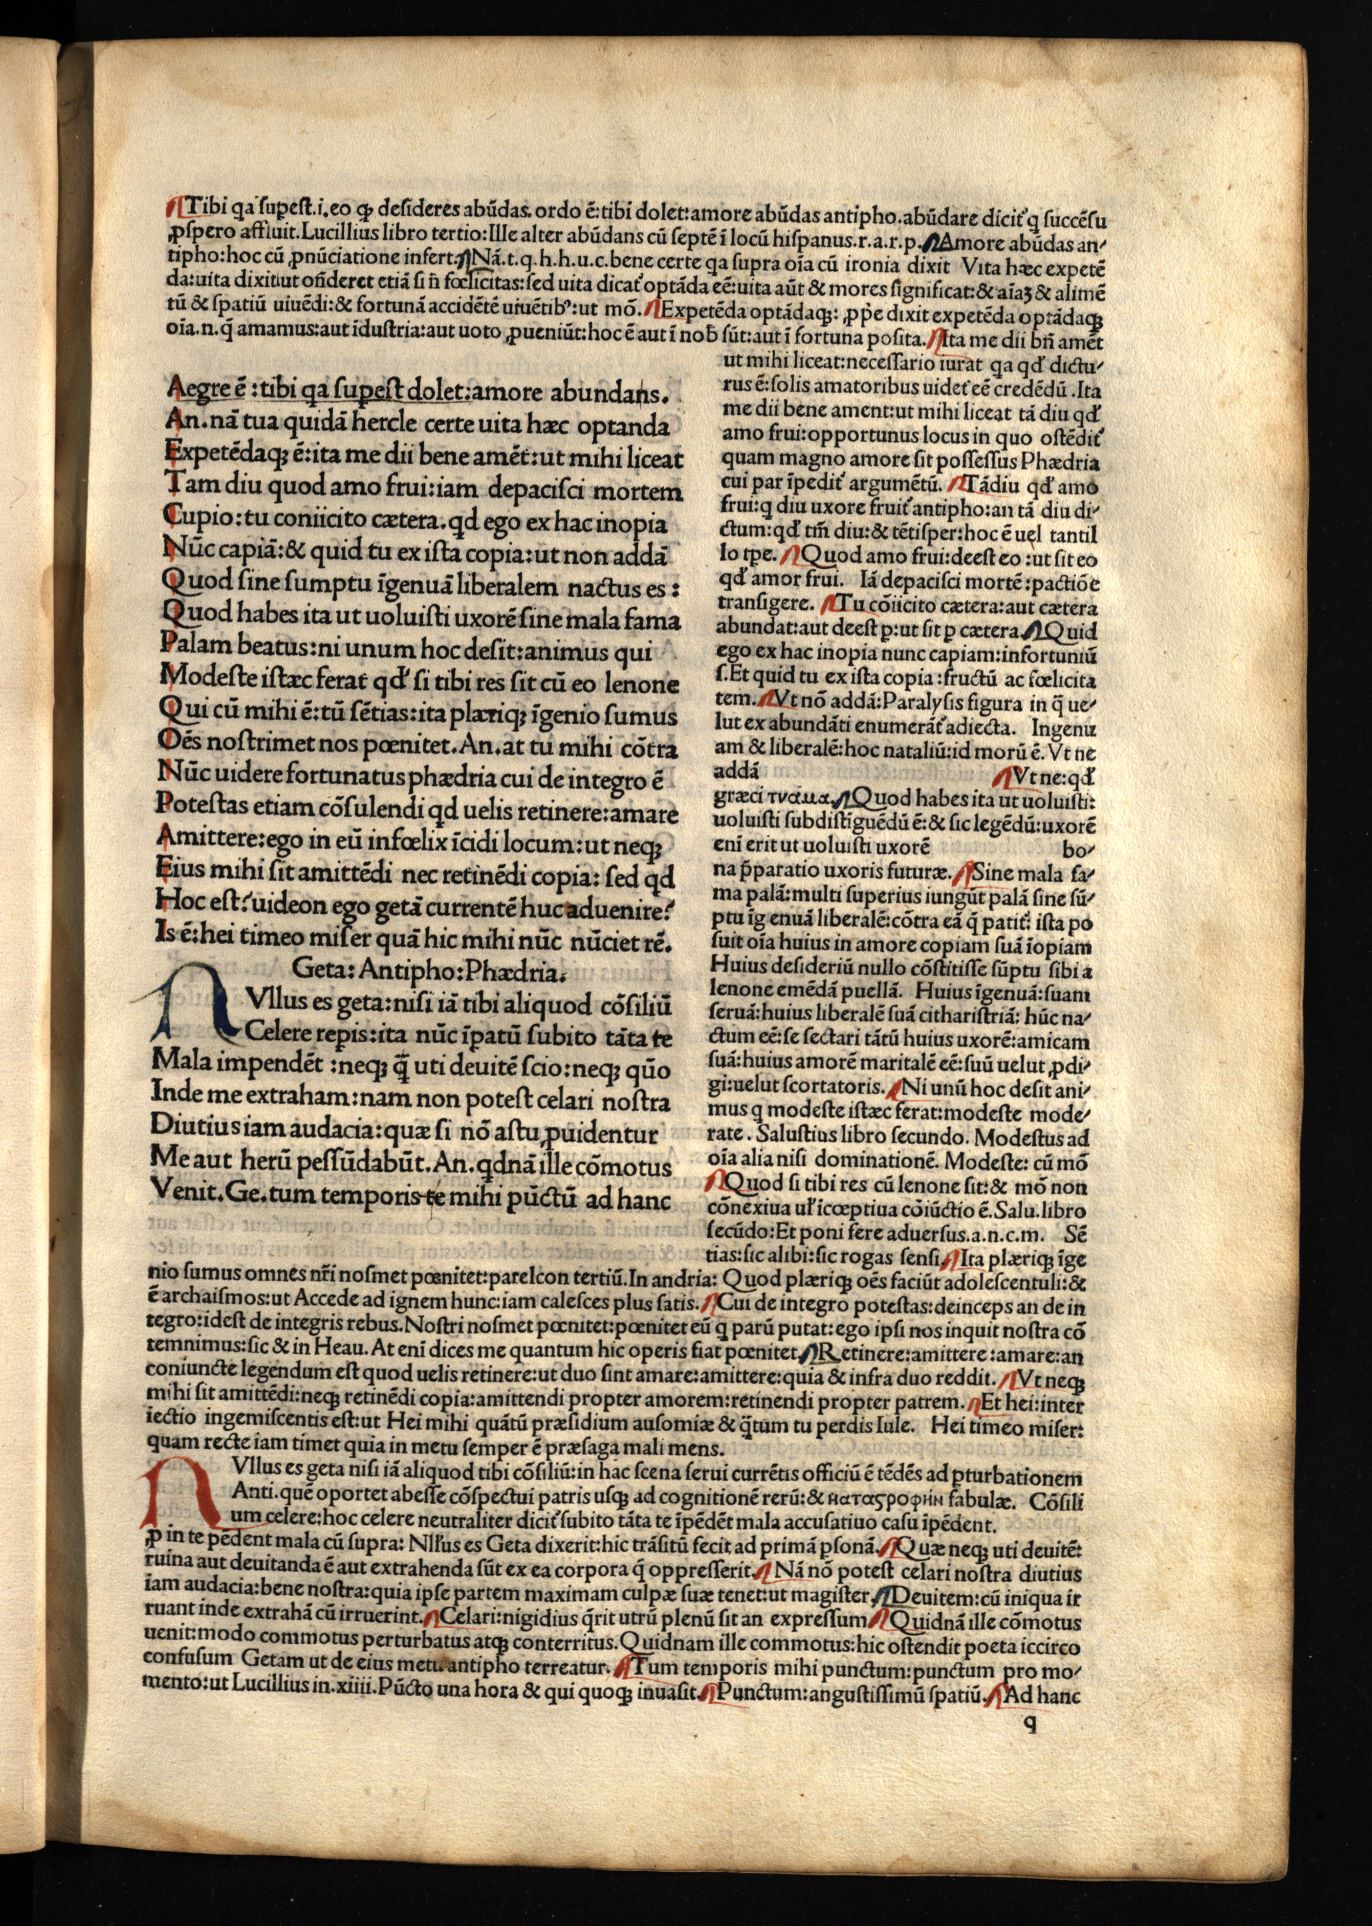 Tibi qa supest.i.eo ꝙ desideres abūdas. ordo ē:tibi dolet:amore abūdas antipho.abūdare dicit̄ q succēsu
ꝓspero affluit.Lucillius libro tertio:Ille alter abūdans cū septē ī locū hispanus.r.a.r.p. Amore abūdas an-
tipho:hoc cū ꝓnūciatione infert. Nā.t.q.h.h.u.c.bene certe qa supra oīa cū ironia dixit Vita hæc expetē
da:uita dixit:ut oñderet etiā si ñ fœlicitas:sed uita dicat̄ optāda eē:uita aūt & mores significat:& aīaꝫ & alimē
tū & spatiū uiuēdi:& fortunā accidētē uiuētibꝰ:ut mō. Expetēda optādaqꝫ: ꝓpe dixit expetēda optādaqꝫ
oīa.n.q̄ amamus:aut īdustria:aut uoto ꝓueniūt:hoc ē aut ī nob̄ sūt:aut ī fortuna posita. Ita me dii bñ amēt
Aegre ē:tibi qa supest dolet:amore abundans.
An.nā tua quidā hercle certe uita hæc optanda
Expetēdaqꝫ ē:ita me dii bene amēt:ut mihi liceat
Tam diu quod amo frui:iam depacisci mortem
Cupio:tu coniicito cætera.qd ego ex hac inopia
Nūc capiā:& quid tu ex ista copia:ut non addā
Quod sine sumptu īgenuā liberalem nactus es:
Quod habes ita ut uoluisti uxorē sine mala fama
Palam beatus:ni unum hoc desit:animus qui
Modeste istæc ferat qđ si tibi res sit cū eo lenone
Qui cū mihi ē:tū sētias:ita plæriqꝫ īgenio sumus
Oēs nostrimet nos pœnitet.An.at tu mihi cōtra
Nūc uidere fortunatus phædria cui de integro ē
Potestas etiam cōsulendi qd uelis retinere:amare
Amittere:ego in eū infœlix īcidi locum:ut neqꝫ
Eius mihi sit amittēdi nec retinēdi copia: sed qd
Hoc est?uideon ego getā currentē huc aduenire?
Is ē:hei timeo miser quā hic mihi nūc nūciet rē.
Geta: Antipho:Phædria.
NVllus es geta:nisi iā tibi aliquod cōsiliū
Celere repis:ita nūc īpatū subito tāta te
Mala impendēt :neqꝫ q̄ uti deuitē scio:neqꝫ qūo
Inde me extraham:nam non potest celari nostra
Diutius iam audacia:quæ si nō astu ꝓuidentur
Me aut herū pessūdabūt.An.qdnā ille cōmotus
Venit.Ge.tum temporis te mihi pūctū ad hanc
ut mihi liceat:necessario iurat qa qđ dictu-
rus ē:solis amatoribus uidet̄ eē credēdū .Ita
me dii bene ament:ut mihi liceat tā diu qđ
amo frui:opportunus locus in quo ostēdit̄
quam magno amore sit possessus Phædria
cui par īpedit̄ argumētū. Tādiu qđ amo
frui:q diu uxore fruit̄ antipho:an tā diu di-
ctum:qđ tm̄ diu:& tētisper:hoc ē uel tantil
lo tpe. Quod amo frui:deest eo:ut sit eo
qđ amor frui. Iā depacisci mortē:pactiōe
transigere. Tu cōiicito cætera:aut cætera
abundat:aut deest p:ut sit p cætera. Quid
ego ex hac inopia nunc capiam:infortuniū
s.Et quid tu ex ista copia:fructū ac fœlicita
tem. Vt nō addā:Paralysis figura in q̄ ue-
lut ex abundāti enumerāt̄ adiecta. Ingenu
am & liberalē:hoc nataliū:id morū ē.Vt ne
addā Vt ne:qđ
græci τναμα. Quod habes ita ut uoluisti:
uoluisti subdistīguēdū ē:& sic legēdū:uxorē
enī erit ut uoluisti uxorē bo-
na p̄paratio uxoris futuræ. Sine mala fa-
ma palā:multi superius iungūt palā sine sū-
ptu īg enuā liberalē:cōtra eā q̄ patit̄: ista po
suit oīa huius in amore copiam suā īopiam
Huius desideriū nullo cōstitisse sūptu sibi a
lenone emēdā puellā. Huius īgenuā:suam
seruā:huius liberalē suā citharistriā: hūc na-
ctum eē:se sectari tātū huius uxorē:amicam
suā:huius amorē maritalē eē:suū uelut ꝓdi-
gi:uelut scortatoris. Ni unū hoc desit ani-
mus q modeste istæc ferat:modeste mode-
rate. Salustius libro secundo. Modestus ad
oīa alia nisi dominationē. Modeste: cū mō
Quod si tibi res cū lenone sit:& mō non
cōnexiua uł īcœptiua cōiūctio ē.Salu.libro
secūdo:Et poni fere aduersus.a.n.c.m. Sē
tias:sic alibi:sic rogas sensi. Ita plæriqꝫ īge
nio sumus omnes nr̄i nosmet pœnitet:parelcon tertiū.In andria: Quod plæriqꝫ oēs faciūt adolescentuli:&
ē archaismos:ut Accede ad ignem hunc:iam calesces plus satis. Cui de integro potestas:deinceps an de in
tegro:idest de integris rebus.Nostri nosmet pœnitet:pœnitet eū q parū putat:ego ipsi nos inquit nostra cō
temnimus:sic & in Heau.At enī dices me quantum hic operis fiat pœnitet. Retinere:amittere:amare:an
coniuncte legendum est quod uelis retinere:ut duo sint amare:amittere:quia & infra duo reddit. Vt neqꝫ
mihi sit amittēdi:neqꝫ retinēdi copia:amittendi propter amorem:retinendi propter patrem. Et hei:inter
iectio ingemiscentis est:ut Hei mihi quātū præsidium ausomiæ & q̄tum tu perdis Iule. Hei timeo miser:
quam recte iam timet quia in metu semper ē præsaga mali mens.
NVllus es geta nisi iā aliquod tibi cōsiliū:in hac scena serui currētis officiū ē tēdēs ad pturbationem
Anti.quē oportet abesse cōspectui patris usqꝫ ad cognitionē rerū:& καταςροφην fabulæ. Cōsili
um celere:hoc celere neutraliter dicit̄ subito tāta te īpēdēt mala accusatiuo casu īpēdent.
ꝓ in te pēdent mala cū supra: Nłłus es Geta dixerit:hic trāsitū fecit ad primā psonā. Quæ neqꝫ uti deuitē:
ruina aut deuitanda ē aut extrahenda sūt ex ea corpora q̄ oppresserit. Nā nō potest celari nostra diutius
iam audacia:bene nostra:quia ipse partem maximam culpæ suæ tenet:ut magister. Deuitem:cū iniqua ir
ruant inde extrahā cū irruerint. Celari:nigidius q̄rit utrū plenū sit an expressum Quidnā ille cōmotus
uenit:modo commotus perturbatus atqꝫ conterritus.Quidnam ille commotus:hic ostendit poeta iccirco
confusum Getam ut de eius metu antipho terreatur. Tum temporis mihi punctum:punctum pro mo-
mento:ut Lucillius in.xiiii.Pūcto una hora & qui quoqꝫ inuasit. Punctum:angustissimū spatiū. Ad hanc
q